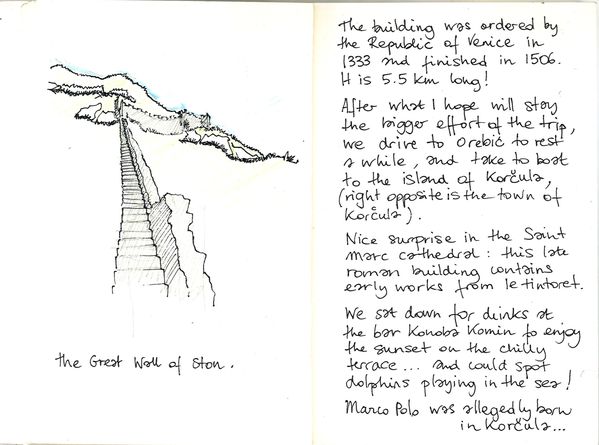 the Great Wall of Ston.
The building was ordered by
the Republic of Venice in
1333 and finished in 1506.
It is 5.5 km long!
After what I hope will stay
the bigger effort of the trip,
we drive to Orebić to rest
a while, and take to boat
to the island of Korčula,
(right opposite is the town of
Korčula).
Nice surprise in the Saint
Marc cathedral: this late
roman building contains
early works from le tintoret.
We sat down for drinks at
the bar Konoba Komin to enjoy
the sunset on the chilly
terrace... and could spot
dolphins playing in the sea!
Marco Polo was allegedly born
in Korčula...